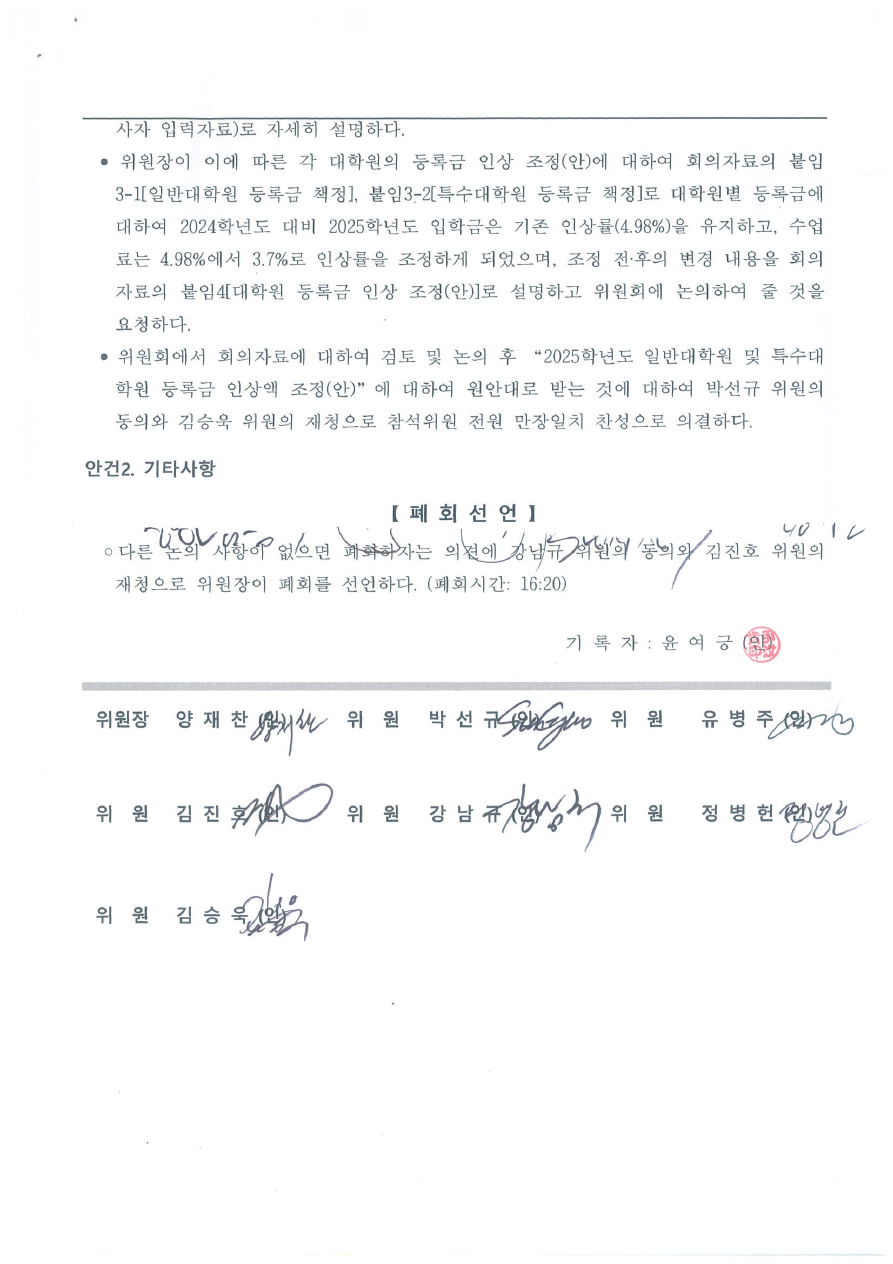 사자 입력자료)로 자세히 설명하다.
• 위원장이 이에 따른 각 대학원의 등록금 인상 조정(안)에 대하여 회의자료의 붙임
3-1[일반대학원 등록금 책정], 붙임3-2[특수대학원 등록금 책정]로 대학원별 등록금에
대하여 2024학년도 대비 2025학년도 입학금은 기존 인상률(4.98%)을 유지하고, 수업
료는 4.98%에서 3.7%로 인상률을 조정하게 되었으며, 조정 전·후의 변경 내용을 회의
자료의 붙임4[대학원 등록금 인상 조정(안)]로 설명하고 위원회에 논의하여 줄 것을
요청하다.
• 위원회에서 회의자료에 대하여 검토 및 논의 후 “2025학년도 일반대학원 및 특수대
학원 등록금 인상액 조정(안)” 에 대하여 원안대로 받는 것에 대하여 박선규 위원의
동의와 김승욱 위원의 재청으로 참석위원 전원 만장일치 찬성으로 의결하다.
안건2. 기타사항
【 폐 회 선 언 】
○ 다른 논의 사항이 없으면 폐회하자는 의견에 강남규 위원의 동의와 김진호 위원의
재청으로 위원장이 폐회를 선언하다. (폐회시간: 16:20)
기 록 자 : 윤 여 긍 (인)
위원장 양 재 찬 (인) 위 원 박 선 규 (인) 위 원 유 병 주 (인)
위 원 김 진 호 (인) 위 원 강 남 규 (인) 위 원 정 병 헌 (인)
위 원 김 승 욱 (인)